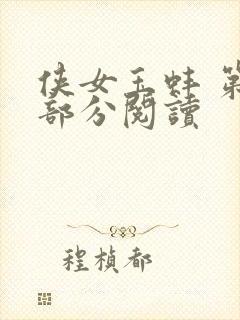 侠女玉蚌 第
部分閱讀
程楨都